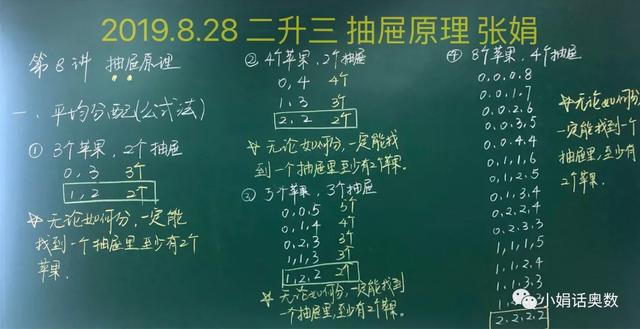 2019.8.28 二升三 抽屉原理 张娟
第8讲 抽屉原理
一、平均分配(公式法)
① 3个苹果,2个抽屉
0,3 3个
1,2 2个
☆无论如何分,一定能
找到一个抽屉里至少有2个
苹果.
② 4个苹果,2个抽屉
0,4 4个
1,3 3个
2,2 2个
☆无论如何分,一定能找
到一个抽屉里,至少有2个苹果.
③ 5个苹果,3个抽屉
0,0,5 5个
0,1,4 4个
0,2,3 3个
1,1,3 3个
1,2,2 2个
☆无论如何分,一定能找到
一个抽屉里,至少有2个苹果.
④ 8个苹果,4个抽屉
0,0,0,8
0,0,1,7
0,0,2,6
0,0,3,5
0,0,4,4
0,1,1,6
0,1,2,5
0,1,3,4
0,2,2,4
0,2,3,3
1,1,1,5
1,1,2,4
1,1,3,3
2,2,2,2
☆无论如何分
一定能找到一个
抽屉里,至少有
2个苹果.
小娟话奥数